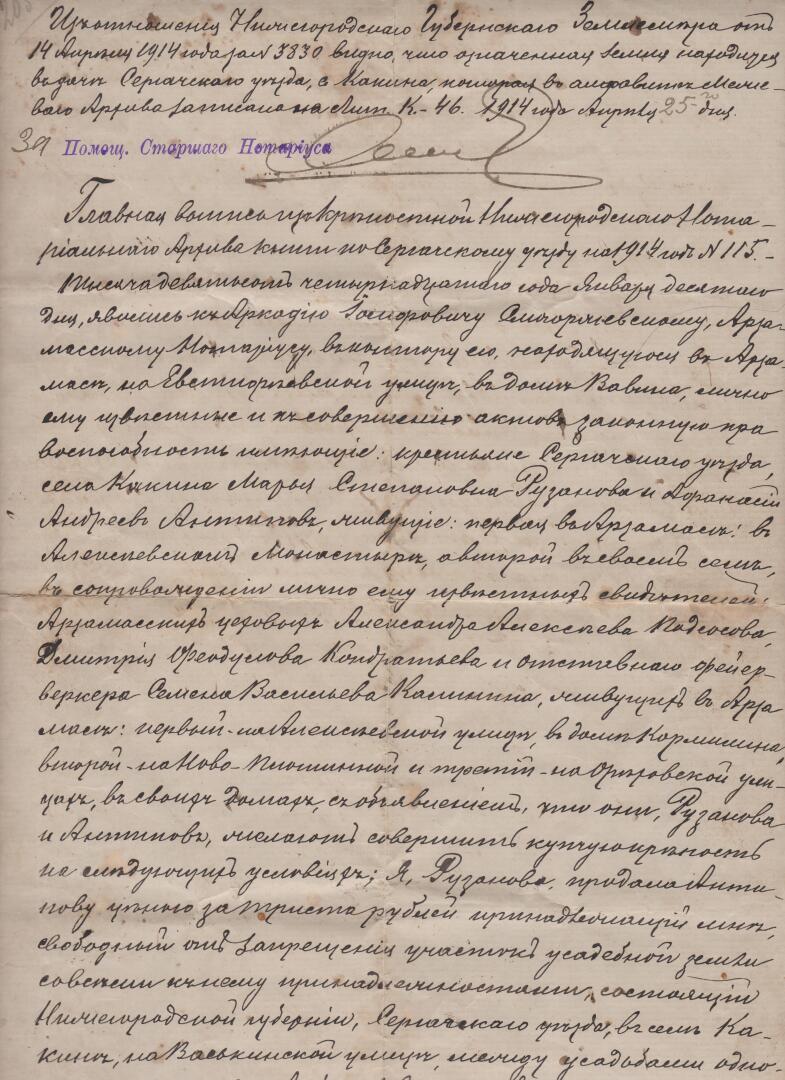 Изъ отношенія Нижегородскаго Губернскаго Землемѣра отъ
14 Апрѣля 1914 года за № 3830 видно, что означенная земля находится
въ дачѣ Сергачскаго уѣзда, с. Какина, которая въ алфавитѣ Меже-
ваго Архива записана на Лит. К.-46. 1914 года Апрѣля 25 дня.
За Помощ. Старшаго Нотаріуса
Главная выпись изъ Крѣпостной Нижегородскаго Нота-
ріальнаго Архива книги по Сергачскому уѣзду на 1914 годъ № 115.-
Тысяча девятьсотъ четырнадцатаго года Января десятаго
дня, явились къ Аркадію Іосифовичу, Арза-
масскому Нотаріусу, въ контору его, находящуюся въ Арза-
масѣ, на улицѣ, въ домѣ Бабина, лично
ему извѣстные и къ совершенію актовъ законную пра
воспособность имѣющіе: крестьяне Сергачскаго уѣзда,
села Какина Марья Степановна Рузанова и Афанасій
Андреевъ Антиповъ, живущіе: первая въ Арзамасѣ: въ
Алексѣевскомъ Монастырѣ, а второй въ своемъ селѣ,
въ сопровожденіи лично ему извѣстныхъ свидѣтелей:
Арзамасскихъ цеховыхъ Александра Алексѣева Подсосова,
Дмитрія Феодулова Кондратьева и отставнаго фейер-
веркера Семена Васильева Калинина, живущихъ въ Арза
масѣ: первый-на Алексѣевской улицѣ, въ домѣ Кормилина,
второй-на Ново-Плотинной и третій-на Орѣховской ули-
цахъ, въ своихъ домахъ, съ объявленіемъ, что они, Рузанова
и Антиповъ, желаютъ совершить купчую крѣпость
на слѣдующихъ условіяхъ: Я, Рузанова, продала Анти-
пову цѣною за триста рублей принадлежащій мнѣ,
свободный отъ запрещенія участокъ усадебной земли
со всѣми къ нему принадлежностями, состоящій
Нижегородской губерніи, Сергачскаго уѣзда, въ селѣ Ка-
кинѣ, на Васькинской улицѣ, между усадьбами одно-